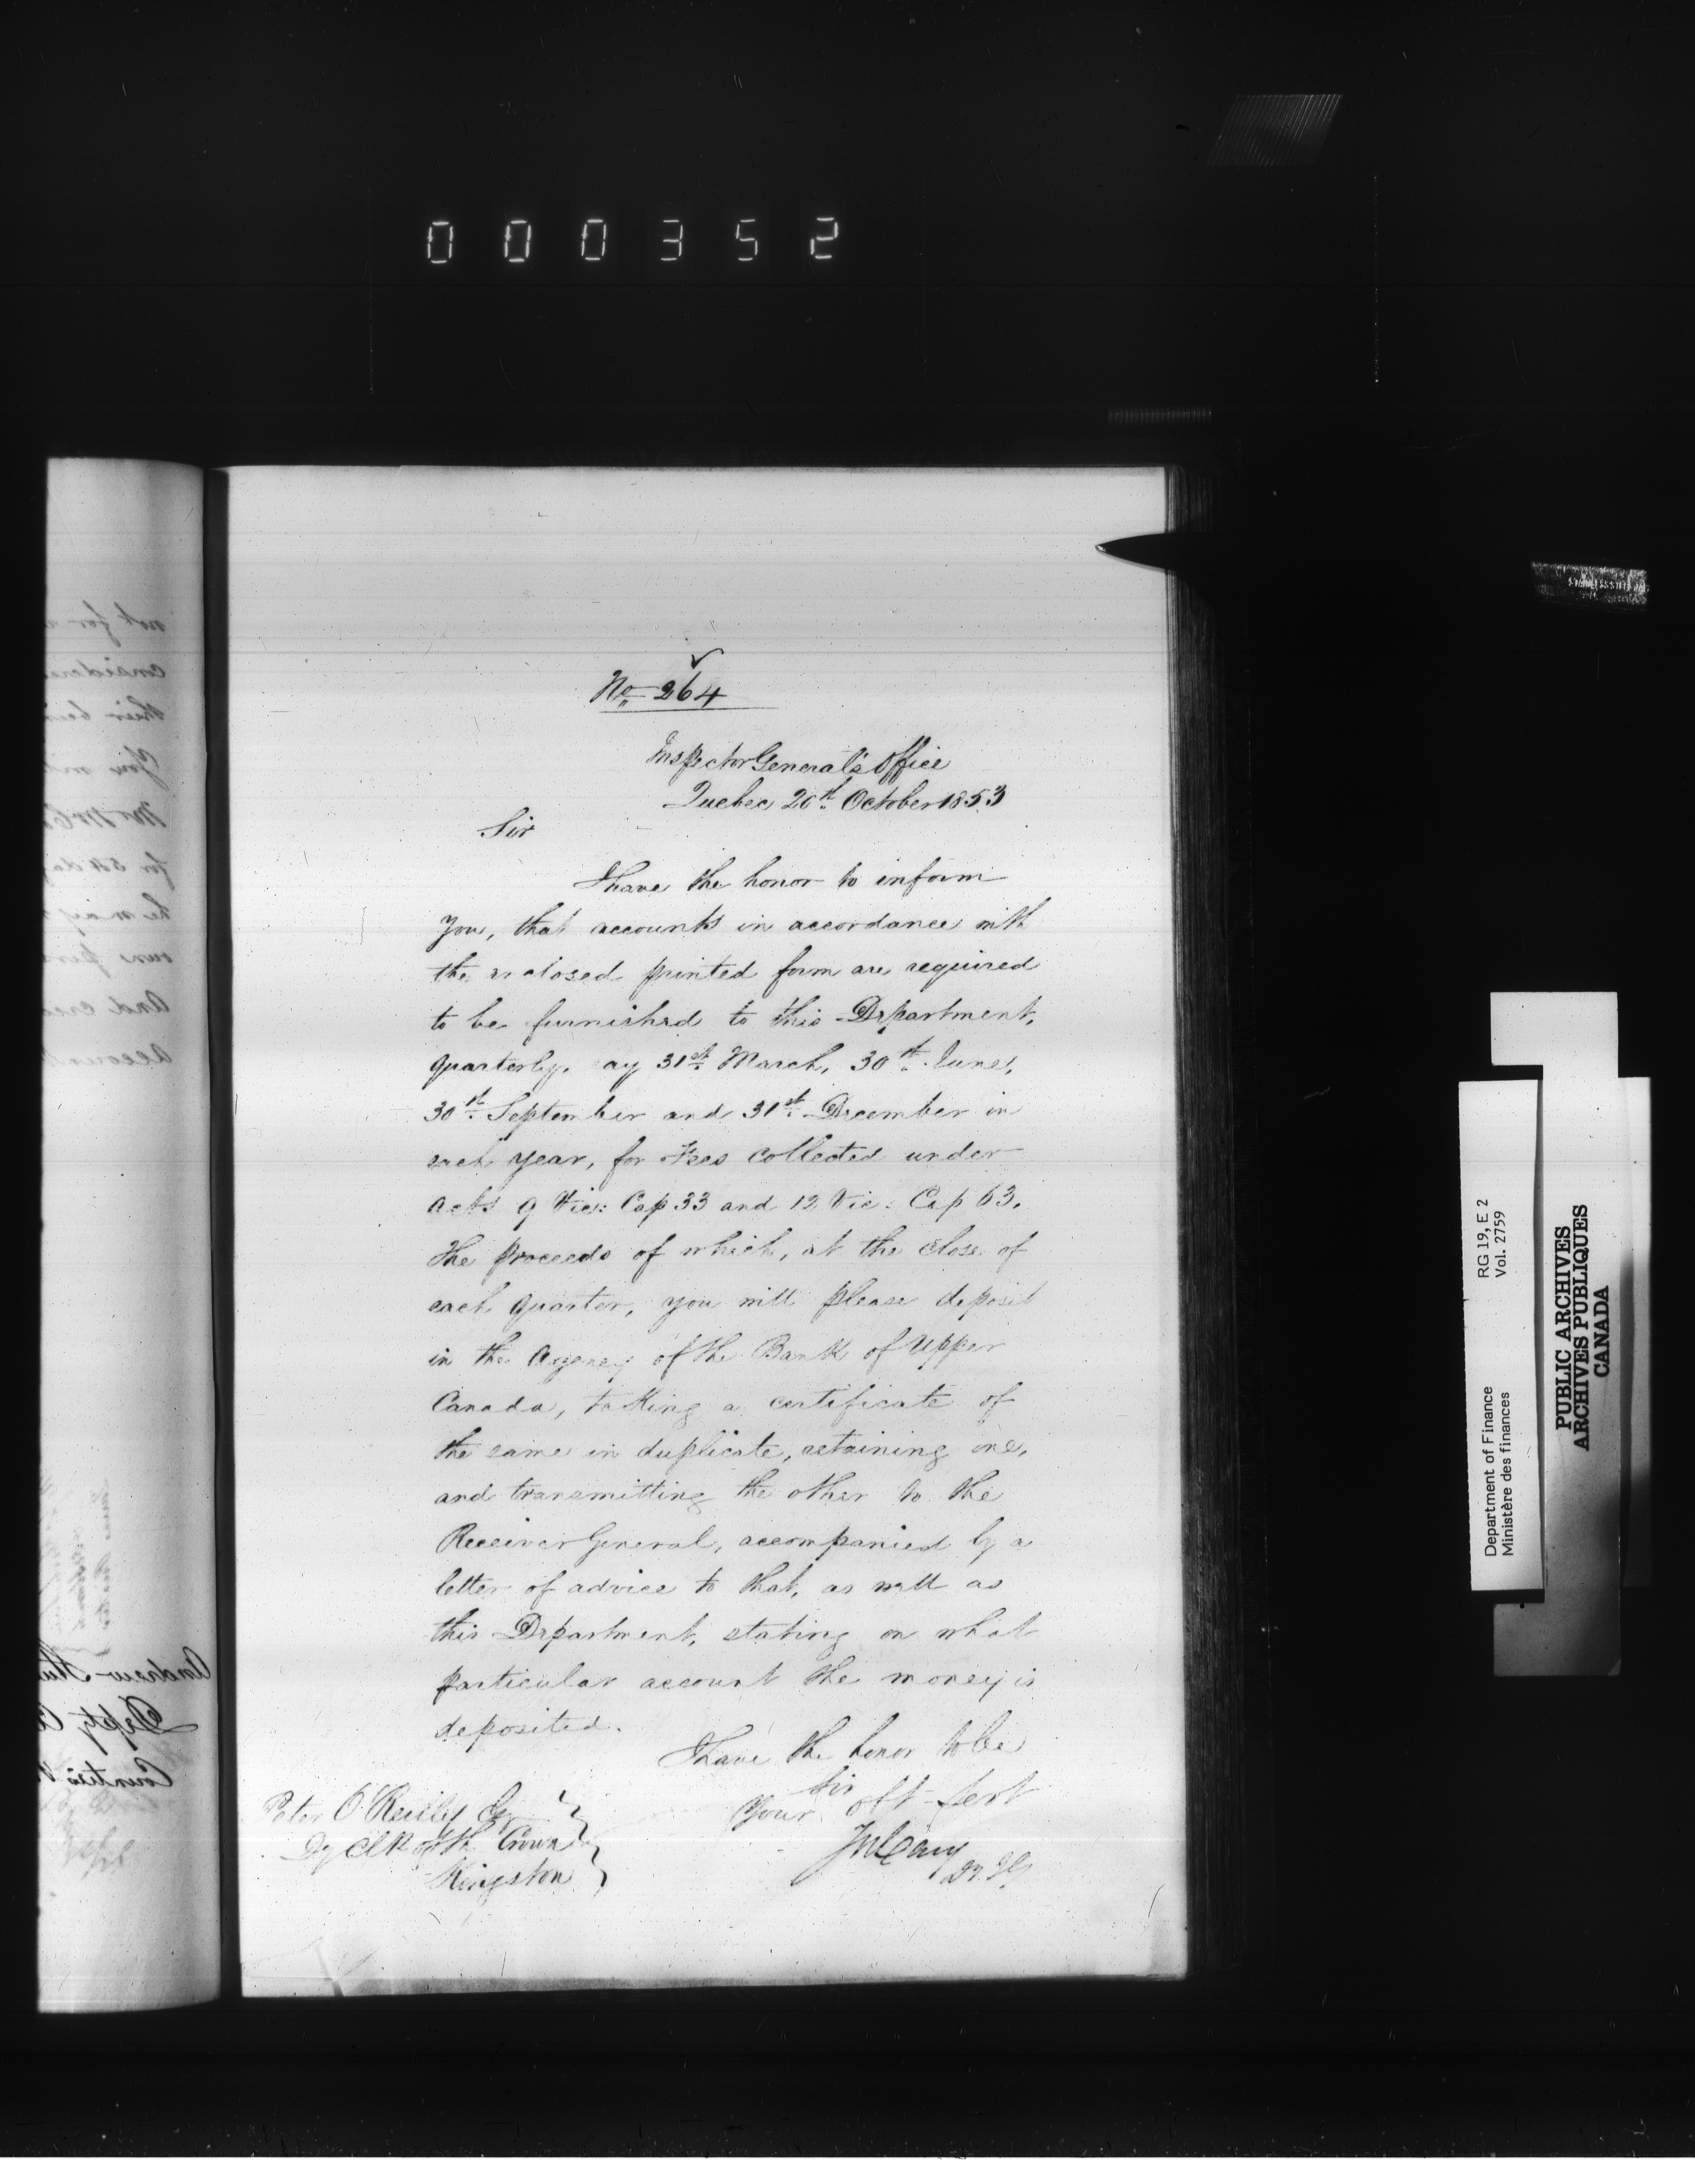 000352
No 264
Inspector General's Office
Quebec 20th October 1853
Sir
I have the honor to inform
you, that accounts in accordance with
the enclosed printed form are required
to be furnished to this Department,
quarterly, say 31st March, 30th June,
30th September and 31st December in
each year, for Fees collected under
acts 9 Vic: Cap 33 and 12 Vic: Cap 63.
The proceeds of which, at the close of
each quarter, you will please deposit
in the Agency of the Bank of Upper
Canada, taking a certificate of
the same in duplicate, retaining one,
and transmitting the other to the
Receiver General, accompanied by a
letter of advice to that, as well as
this Department, stating on what
particular account the money is
deposited.
I have the honor to be
Sir
Your obt Sert
Peter O'Reilly Esqr
Dy Clk of the Crown
Kingston
Jos Cary
Dy. I. G.
RG 19, E 2
Vol. 2759
Department of Finance
Ministère des finances
PUBLIC ARCHIVES
ARCHIVES PUBLIQUES
CANADA